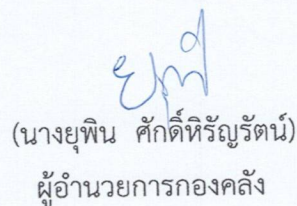 (นางยุพิน ศักดิ์หิรัญรัตน์)
ผู้อำนวยการกองคลัง